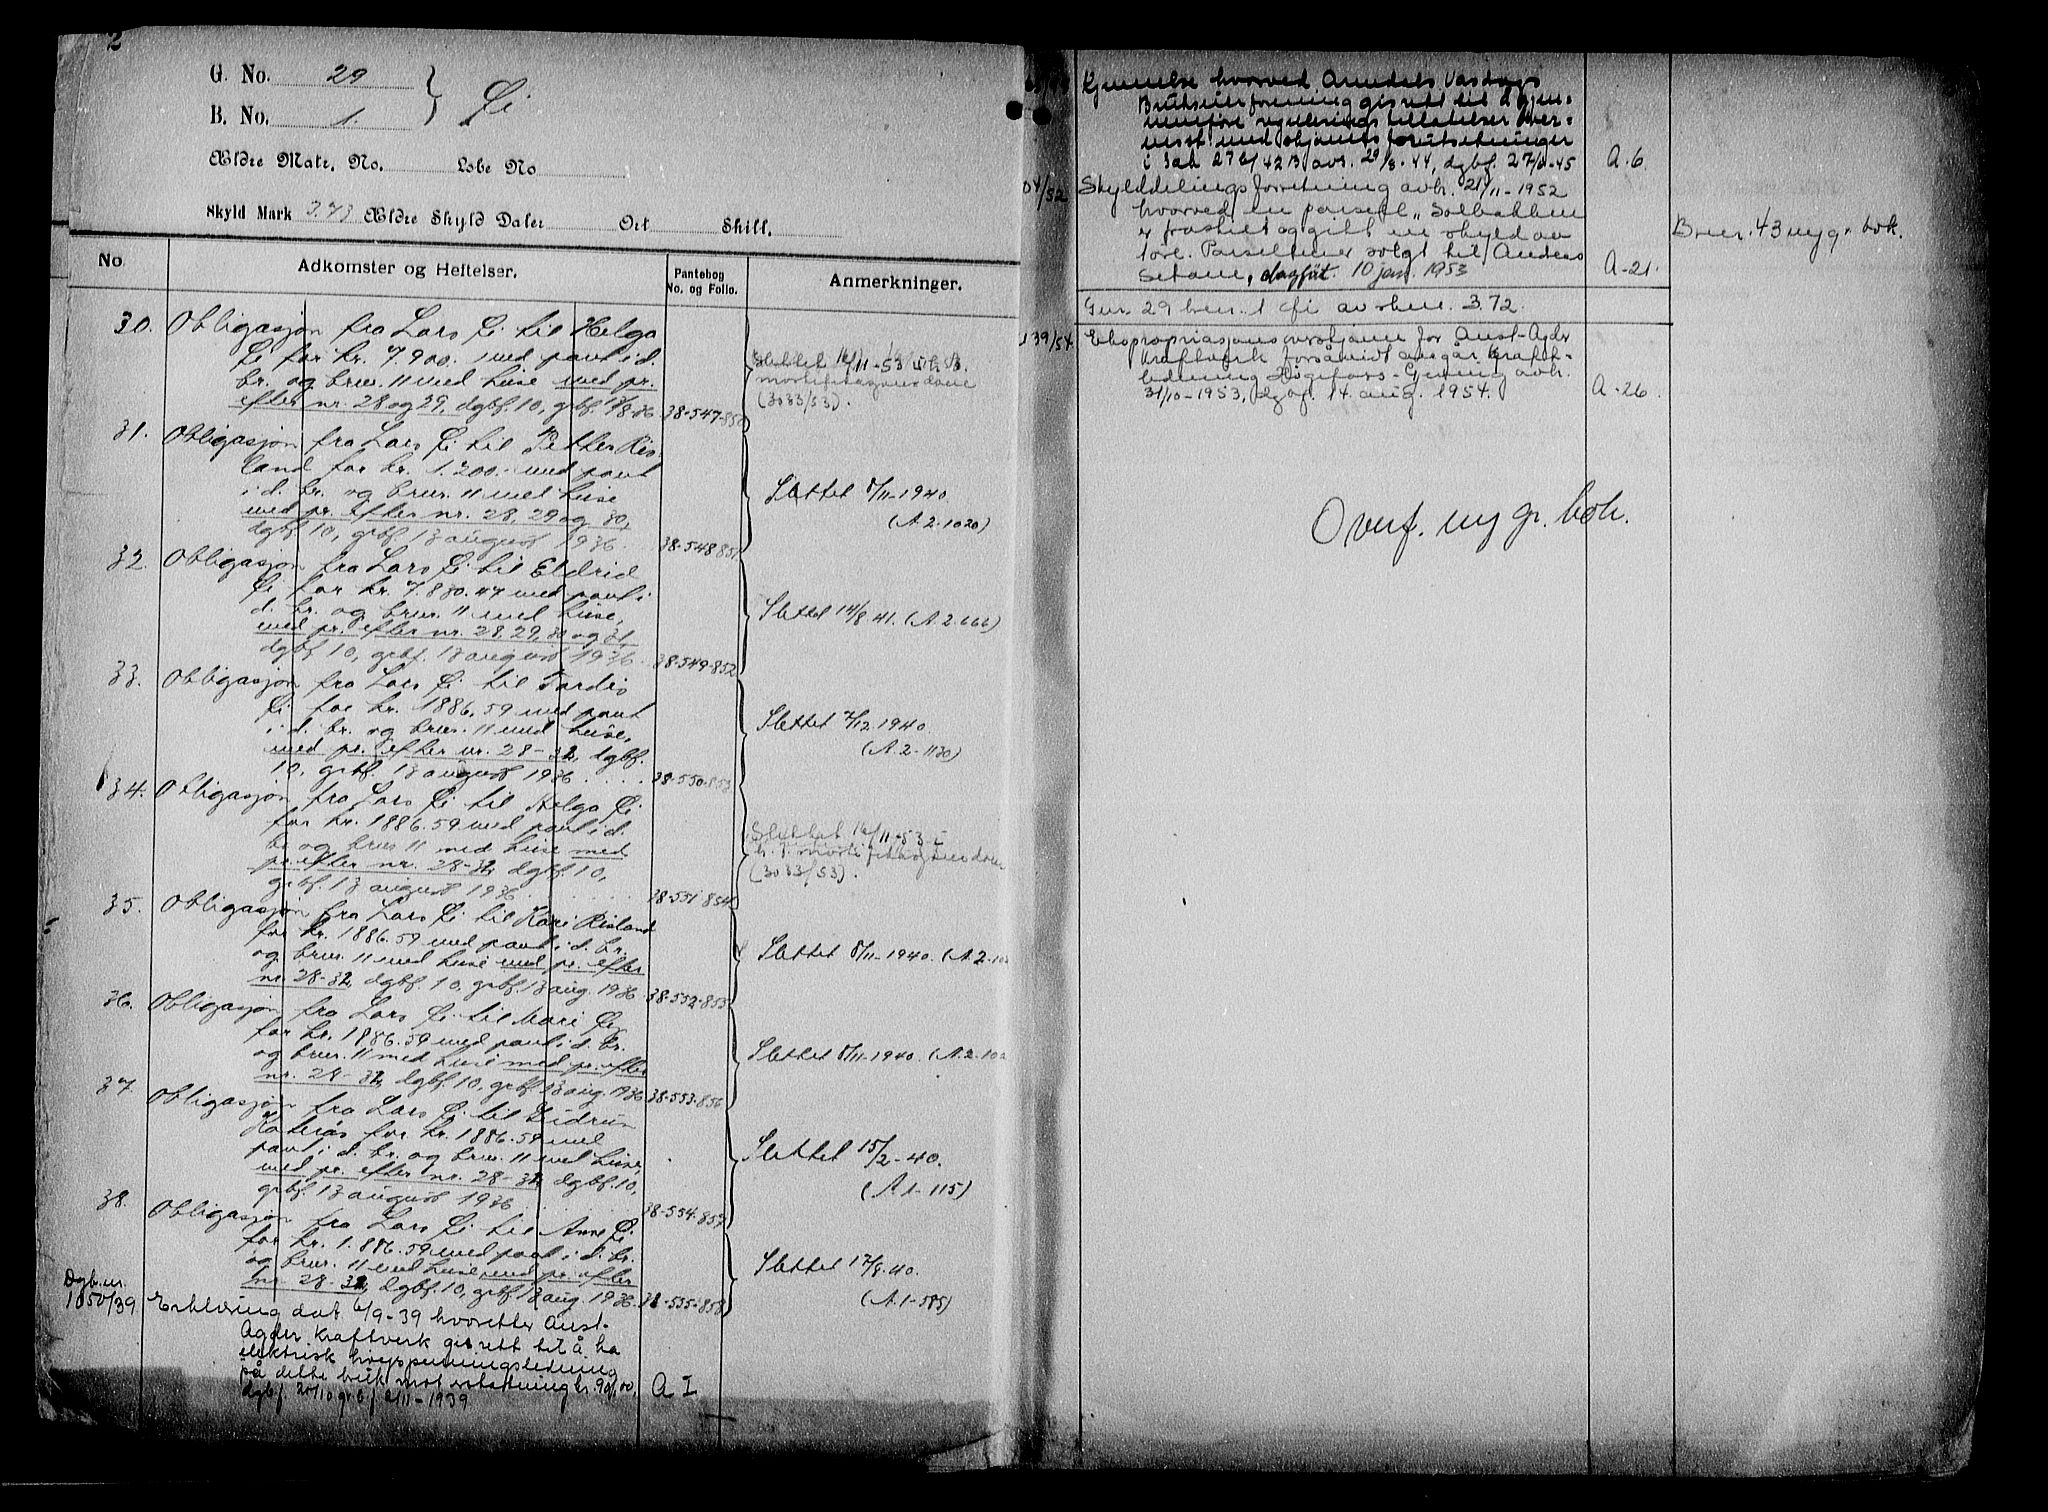 2
G. No. 29
B. No. 1. } Li
Ældre Matr. No. Løbe No
Skyld Mark 3.73 Ældre Skyld Daler Ort Skill.
No.
Adkomster og Heftelser.
Pantebog No. og Folio.
Anmerkninger.
30. Obligasjon fra Lars Li til Helga
Li for kr. 7.900.- med pant i d.
br. og brnr. 11 med huse med pr.
efter nr. 28 og 29, dgbf. 10, grbf. 13/8-36 38-547-850
Slettet 16/11-53 iflg.
mortifikasjonsdom
(3033/53).
31. Obligasjon fra Lars Li til Petter Ris-
land for kr. 1.200.- med pant
i d. br. og brnr. 11 med huse
med pr. efter nr. 28, 29 og 30,
dgbf. 10, grbf. 13 august 1936 38-548-851
Slettet 8/11-1940
(A.2-1020)
32. Obligasjon fra Lars Li til Eldrid
Li for kr. 7.830.47 med pant i
d. br. og brnr. 11 med huse,
med pr. efter nr. 28, 29, 30 og 31,
dgbf. 10, grbf. 13 august 1936 38-549-852
Slettet 14/8-41. (A.2-666)
33. Obligasjon fra Lars Li til Tordis
Li for kr. 1886.59 med pant
i d. br. og brnr. 11 med huse,
med pr. efter nr. 28-32, dgbf.
10, grbf. 13 august 1936 38-550-853
Slettet 7/12-1940.
(A.2-1130)
34. Obligasjon fra Lars Li til Helga Li
for kr. 1886.59 med pant i d.
br. og brnr. 11 med huse med
pr. efter nr. 28-32, dgbf. 10,
grbf. 13 august 1936 38-551-854
Slettet 16/11-53 i
h. t. mortifikasjonsdom
(3033/53).
35. Obligasjon fra Lars Li til Kari Risland
for kr. 1886.59 med pant i d. br.
og brnr. 11 med huse med pr. efter
nr. 28-32, dgbf. 10, grbf. 13 aug. 1936 38-552-855
Slettet 8/11-1940. (A.2-10
36. Obligasjon fra Lars Li til Mari Li
for kr. 1886.59 med pant i d. br.
og brnr. 11 med huse med pr. efter
nr. 28-32, dgbf. 10, grbf. 13 aug. 1936 38-553-856
Slettet 8/11-1940. (A.2-102
37. Obligasjon fra Lars Li til Gudrun
for kr. 1886.59 med
pant i d. br. og brnr. 11 med huse,
med pr. efter nr. 28-32, dgbf. 10,
grbf. 13 august 1936 38-554-857
Slettet 15/2-40.
(A.1-115)
38. Obligasjon fra Lars Li til Anne Li
for kr. 1.886.59 med pant i d. br.
og brnr. 11 med huse med pr. efter
nr. 28-32, dgbf. 10, grbf. 13 aug. 1936. 38-555-858
Slettet 17/8-40.
(A.1-585)
Dgb.nr.
1050/39 Erklæring dat 6/9-39 hvoretter Aust-
Agder Kraftverk gis rett til å ha
elektrisk høyspenningsledning
på dette bruk mot erstatning kr. 90,00,
dgbf. 20/10 grbf. 2/11-1939 A I
Kjennelse hvorved Arendals Vasdrags
Brukseierforening gis rett til å gjen-
nemføre regulerings tillatelser over-
ensst. med skjønnets forutsetninger
i sak 27b/42 B avs. 29/8-44, dgbf. 27/4-45 A.6
04/52 Skylddelingsforretning avh. 21/11-1952
hvorved en parsell "Solbakken
er fraskilt og gitt en skyld av
1 øre. Parsellen er solgt til Anders
Setane, dagført 10 jan. 1953 A-21.
Brnr. 43 ny gr. bok.
Gnr. 29 bnr. 1 Li av skm. 3.72.
139/54. Ekspropriasjonsoverskjønn for Aust-Agder
Kraftverk forsåvidt angår kraft-
ledning Høgefoss-Gjerning avh.
31/10-1953, dgbf. 14 aug. 1954. A-26.
Overf. ny gr. bok.